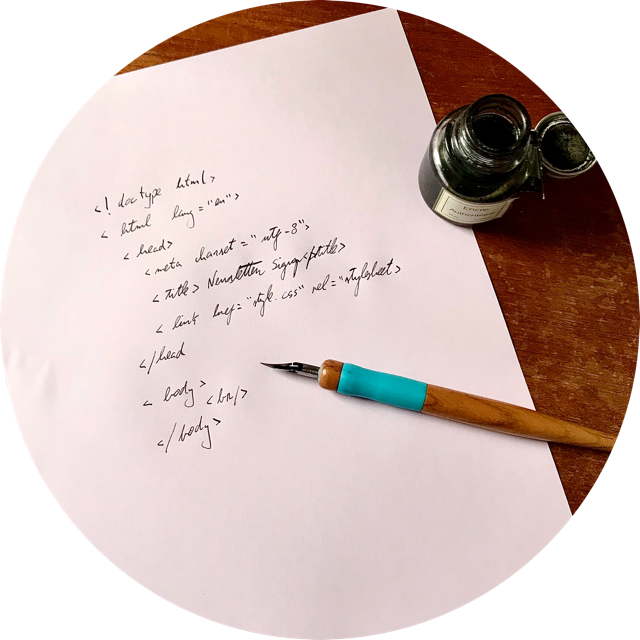 <! doctype html>
< html lang="en">
< head>
<meta charset="utf-8">
<title> Newsletter Signup</title>
< link href="style.css" rel="stylesheet>
</head
< body> <br/>
</body>
Encre
Authentique